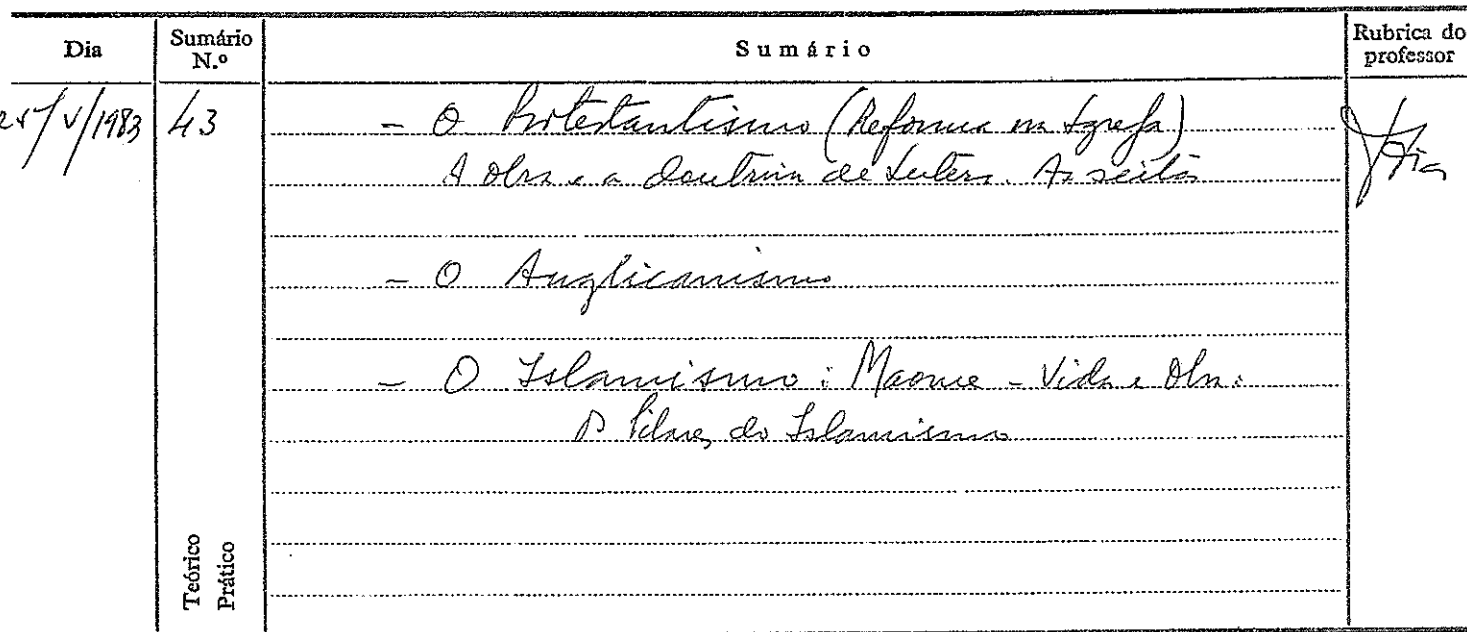 Dia
Sumário N.º
Sumário
Rubrica do professor
25/V/1983
43
- O Protestantismo (Reforma na Igreja)
A obra e a doutrina de Lutero. As seitas
- O Anglicanismo
- O Islamismo: Maomé - Vida e Obra.
Os Pilares do Islamismo
Teórico
Prático